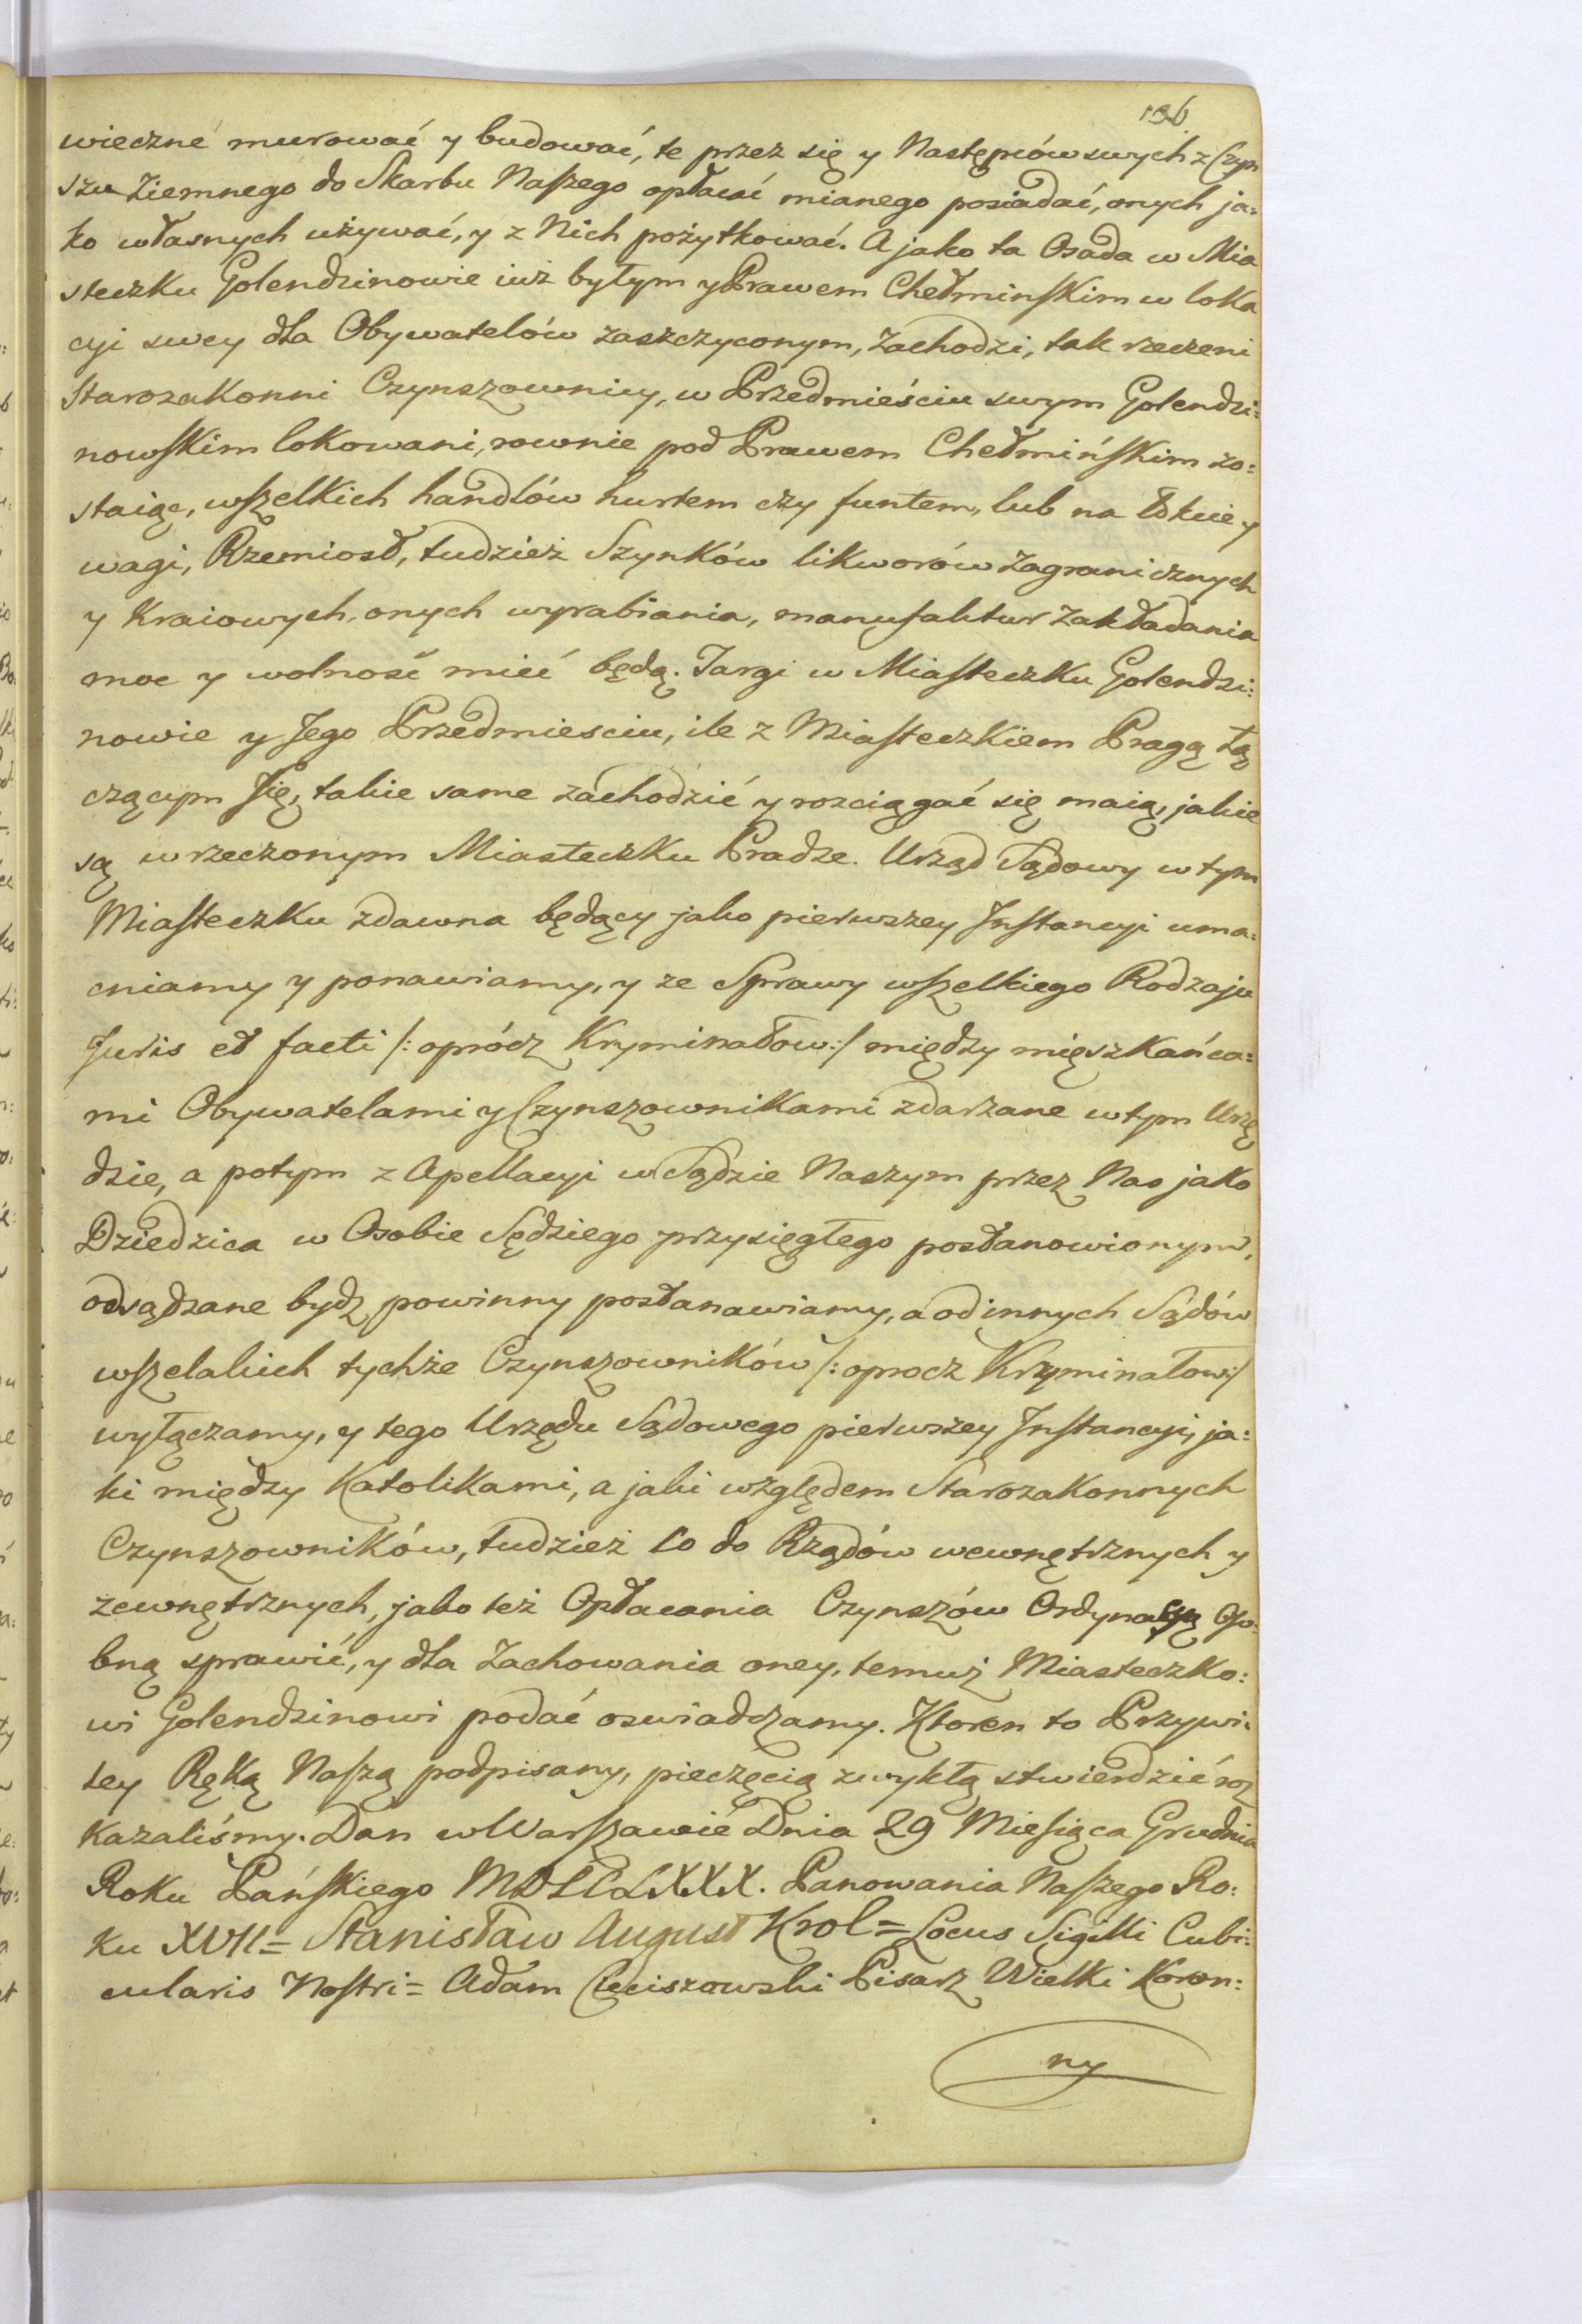 136
wieczne murować y budować, te przez się y Następców swych z Czyn
szu Ziemnego do Skarbu Naszego opłacać mianego posiadać, onych ja:
ko własnych używać, y z Nich pożytkować. A jako ta Osada w Mia
steczku Golendzinowie iuż byłym y Prawem Chełminskim w loka
cyi swey dla Obywatelów zaszczyconym, zachodzi, tak rzeczeni
Starozakonni Czynszownicy, w Przedmieściu swym Golendzi:
nowskim lokowani, rownie pod Prawem Chełmińskim zo:
staiąc, wszelkich handlów hurtem czy funtem, lub na łokcie y
wagi, Rzemiosł, tudzież Szynków likworów zagranicznych
y Kraiowych, onych wyrabiania, manufaktur zakładania
moc y wolność mieć będą. Targi w Miasteczku Golendzi:
nowie y Jego Przedmiesciu, ile z Miasteczkiem Pragą łą
czącym się, takie same zachodzić y rozciągać się maią, jakie
są w rzeczonym Miasteczku Pradze. Urząd Sądowy w tym
Miasteczku zdawna będący jako pierwszey Instancyi uma:
cniamy y ponawiamy, y ze Sprawy wszelkiego Rodzaju
Juris et facti /: oprócz Kryminałow :/ między mięszkańca:
mi Obywatelami y Czynszownikami zdarzane w tym Urzę
dzie, a potym z Apellacyi w Sądzie Naszym przez Nas jako
Dziedzica w Osobie Sędziego przysięgłego postanowionym,
odsądzane bydz powinny postanawiamy, a od innych Sądów
wszelakich tychże Czynszowników /: oprocz Kryminałow :/
wyłączamy, y tego Urzędu Sądowego pierwszey Instancyi, ja:
ki między Katolikami, a jaki względem Starozakonnych
Czynszowników, tudzież co do Rządów wewnętrznych y
zewnętrznych, jako też Opłacania Czynszów Ordynacyą Oso:
bną sprawić, y dla Zachowania oney, temuż Miasteczko:
wi Golendzinowi podać oswiadczamy. Ktoren to Przywi:
ley Ręką Naszą podpisany, pieczęcią zwykłą stwierdzić roz
kazaliśmy. Dan w Warszawie Dnia 29 Miesiąca Grudnia
Roku Pańskiego MDCCLXXX. Panowania Naszego Ro:
ku XVII = Stanisław August Krol = Locus Sigilli Cubi:
cularis Nostri = Adam Cieciszowski Pisarz Wielki Koron:
ny